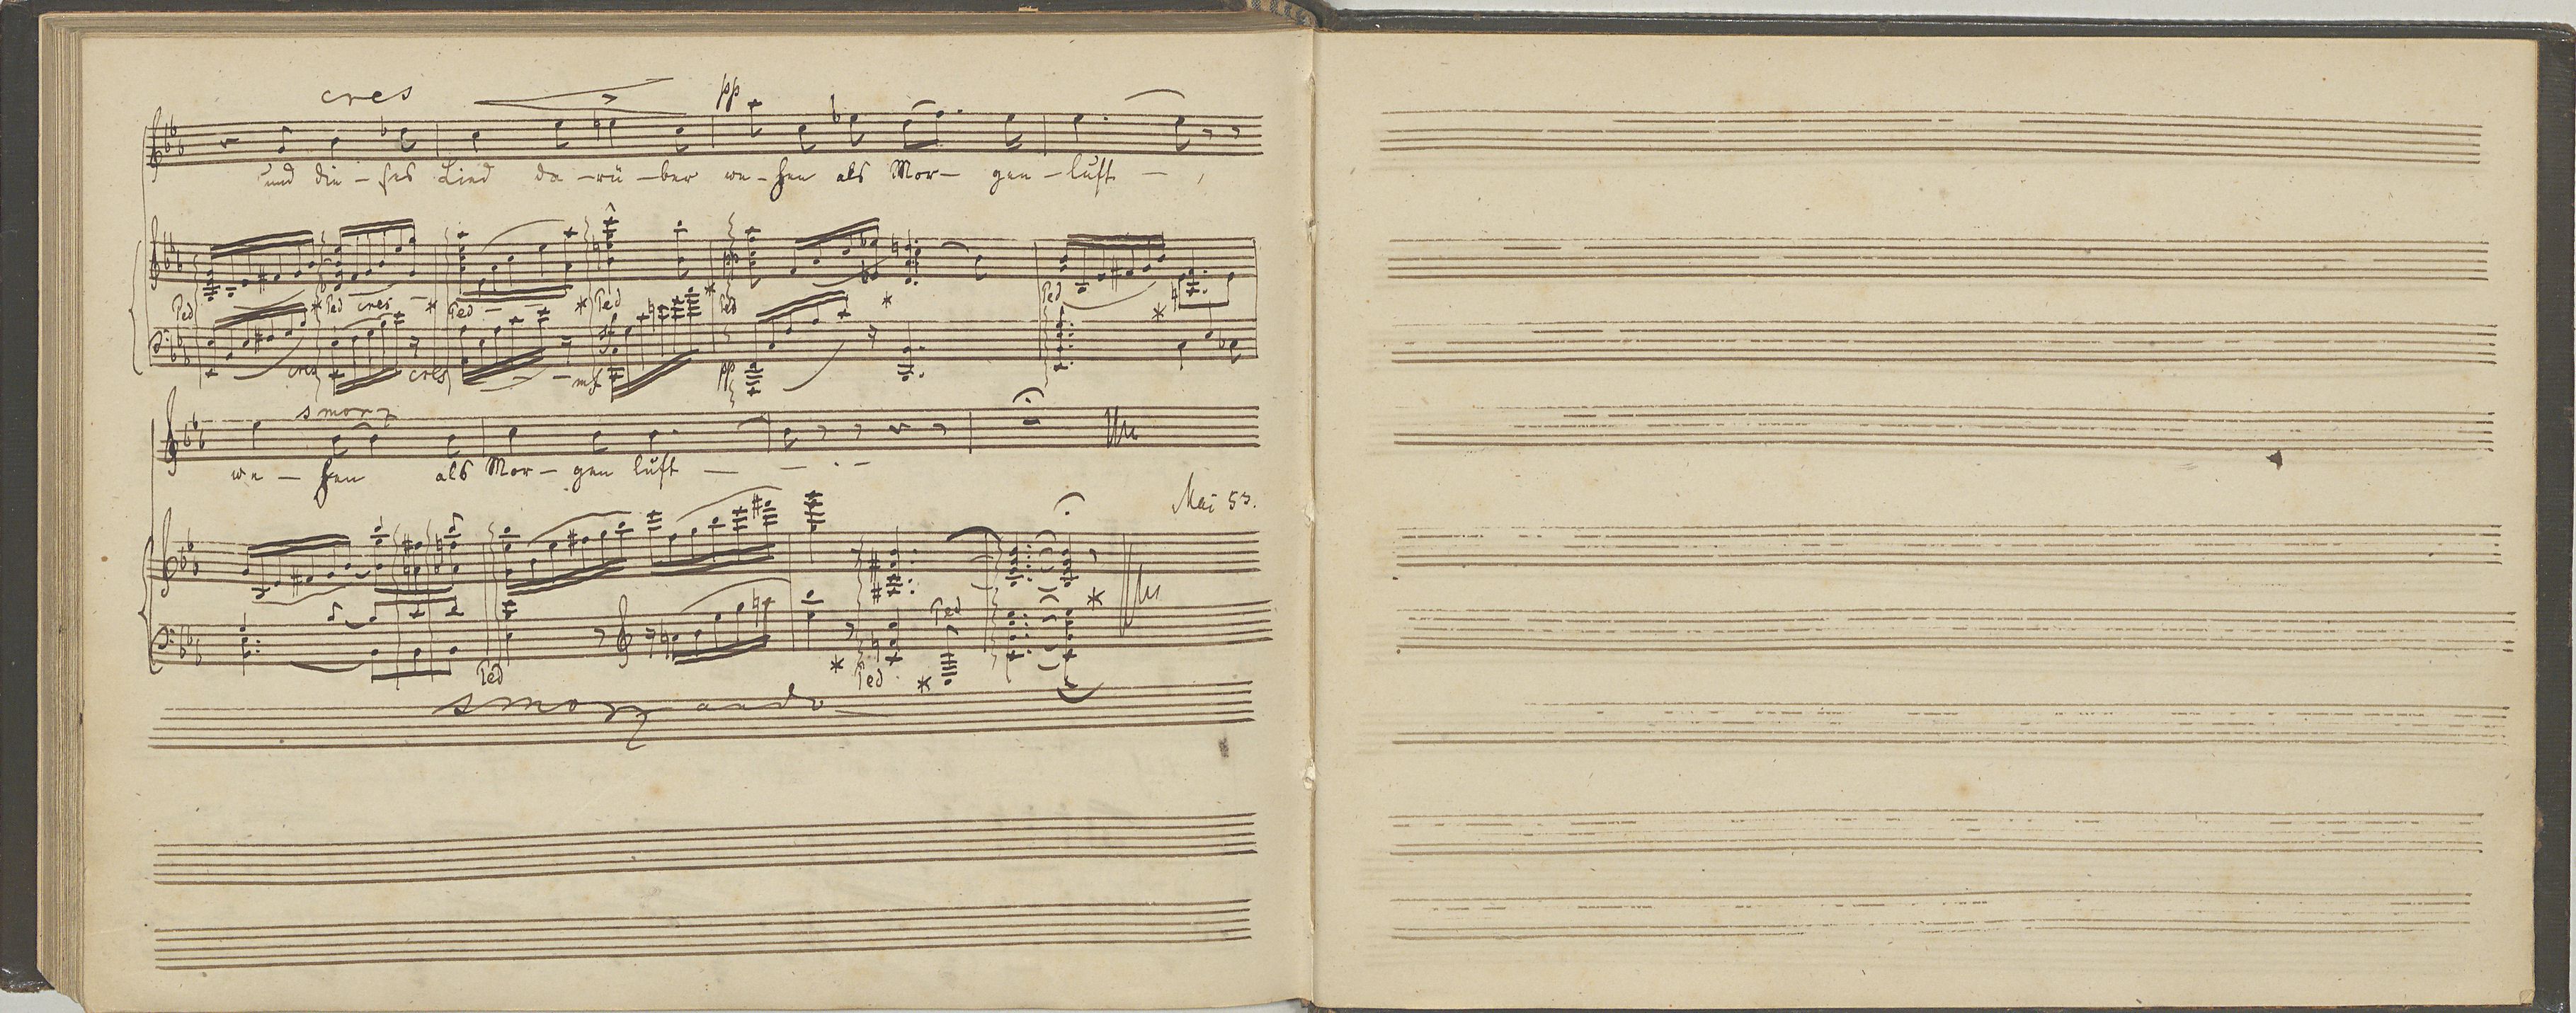 cres
pp
und die - ses Lied da - rü - ber we - hen als Mor - gen - luft - ,
Ped * Ped cres - * Ped - * Ped * Ped * Ped *
cres cres mf sf pp
smorz
we - hen als Mor - gen luft - - . -
Mai 53.
Ped * Ped * Ped *
smorz ando